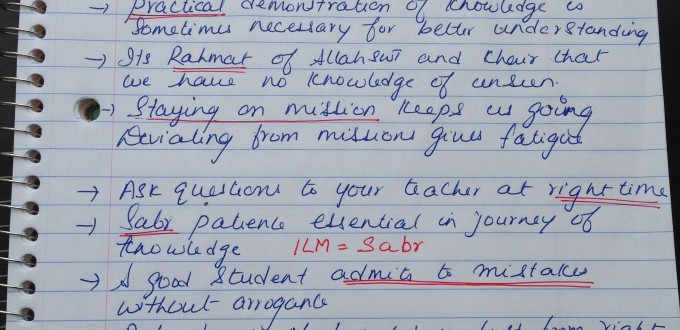 → Practical demonstration of knowledge is
sometimes necessary for better understanding
→ Its Rahmat of Allah SWT and Khair that
we have no knowledge of unseen.
→ Staying on mission keeps us going
Deviating from missions gives fatigue
→ Ask questions to your teacher at right time
→ Sabr patience essential in journey of
knowledge ILM = Sabr
→ A good student admits to mistakes
without arrogance
from right